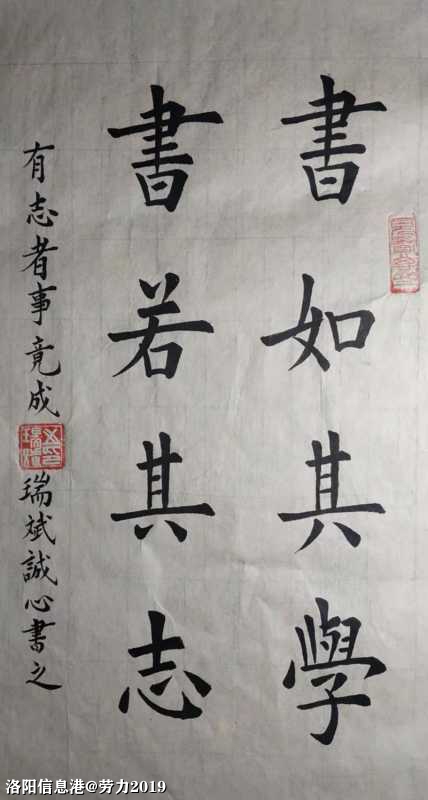 書如其學
書若其志
有志者事竟成
瑞斌誠心書之
洛阳信息港@劳力2019